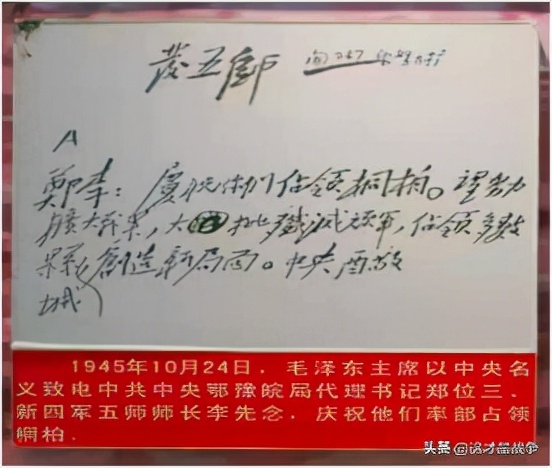 发五师
A
鄭李：慶祝你们佔領桐柏。望努力
扩大战果，大批殲滅顽军，佔領多数
县創造新局面。中央酉敬
城
1945年10月24日，毛泽东主席以中央名
义致电中共中央鄂豫皖局代理书记郑位三、
新四军五师师长李先念，庆祝他们率部占领
桐柏.
头条